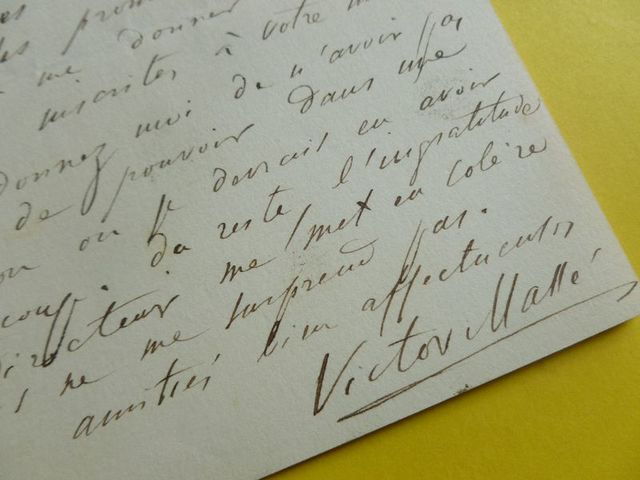 es
des prom
me donner
inscrites à votre
donnez moi de n'avoir pas
de pouvoir dans une
on où je devrais en avoir
coup. du reste, l'ingratitude
directeur me met en colère
ne me surprend pas.
amitiés bien affectueuses
Victor Massé